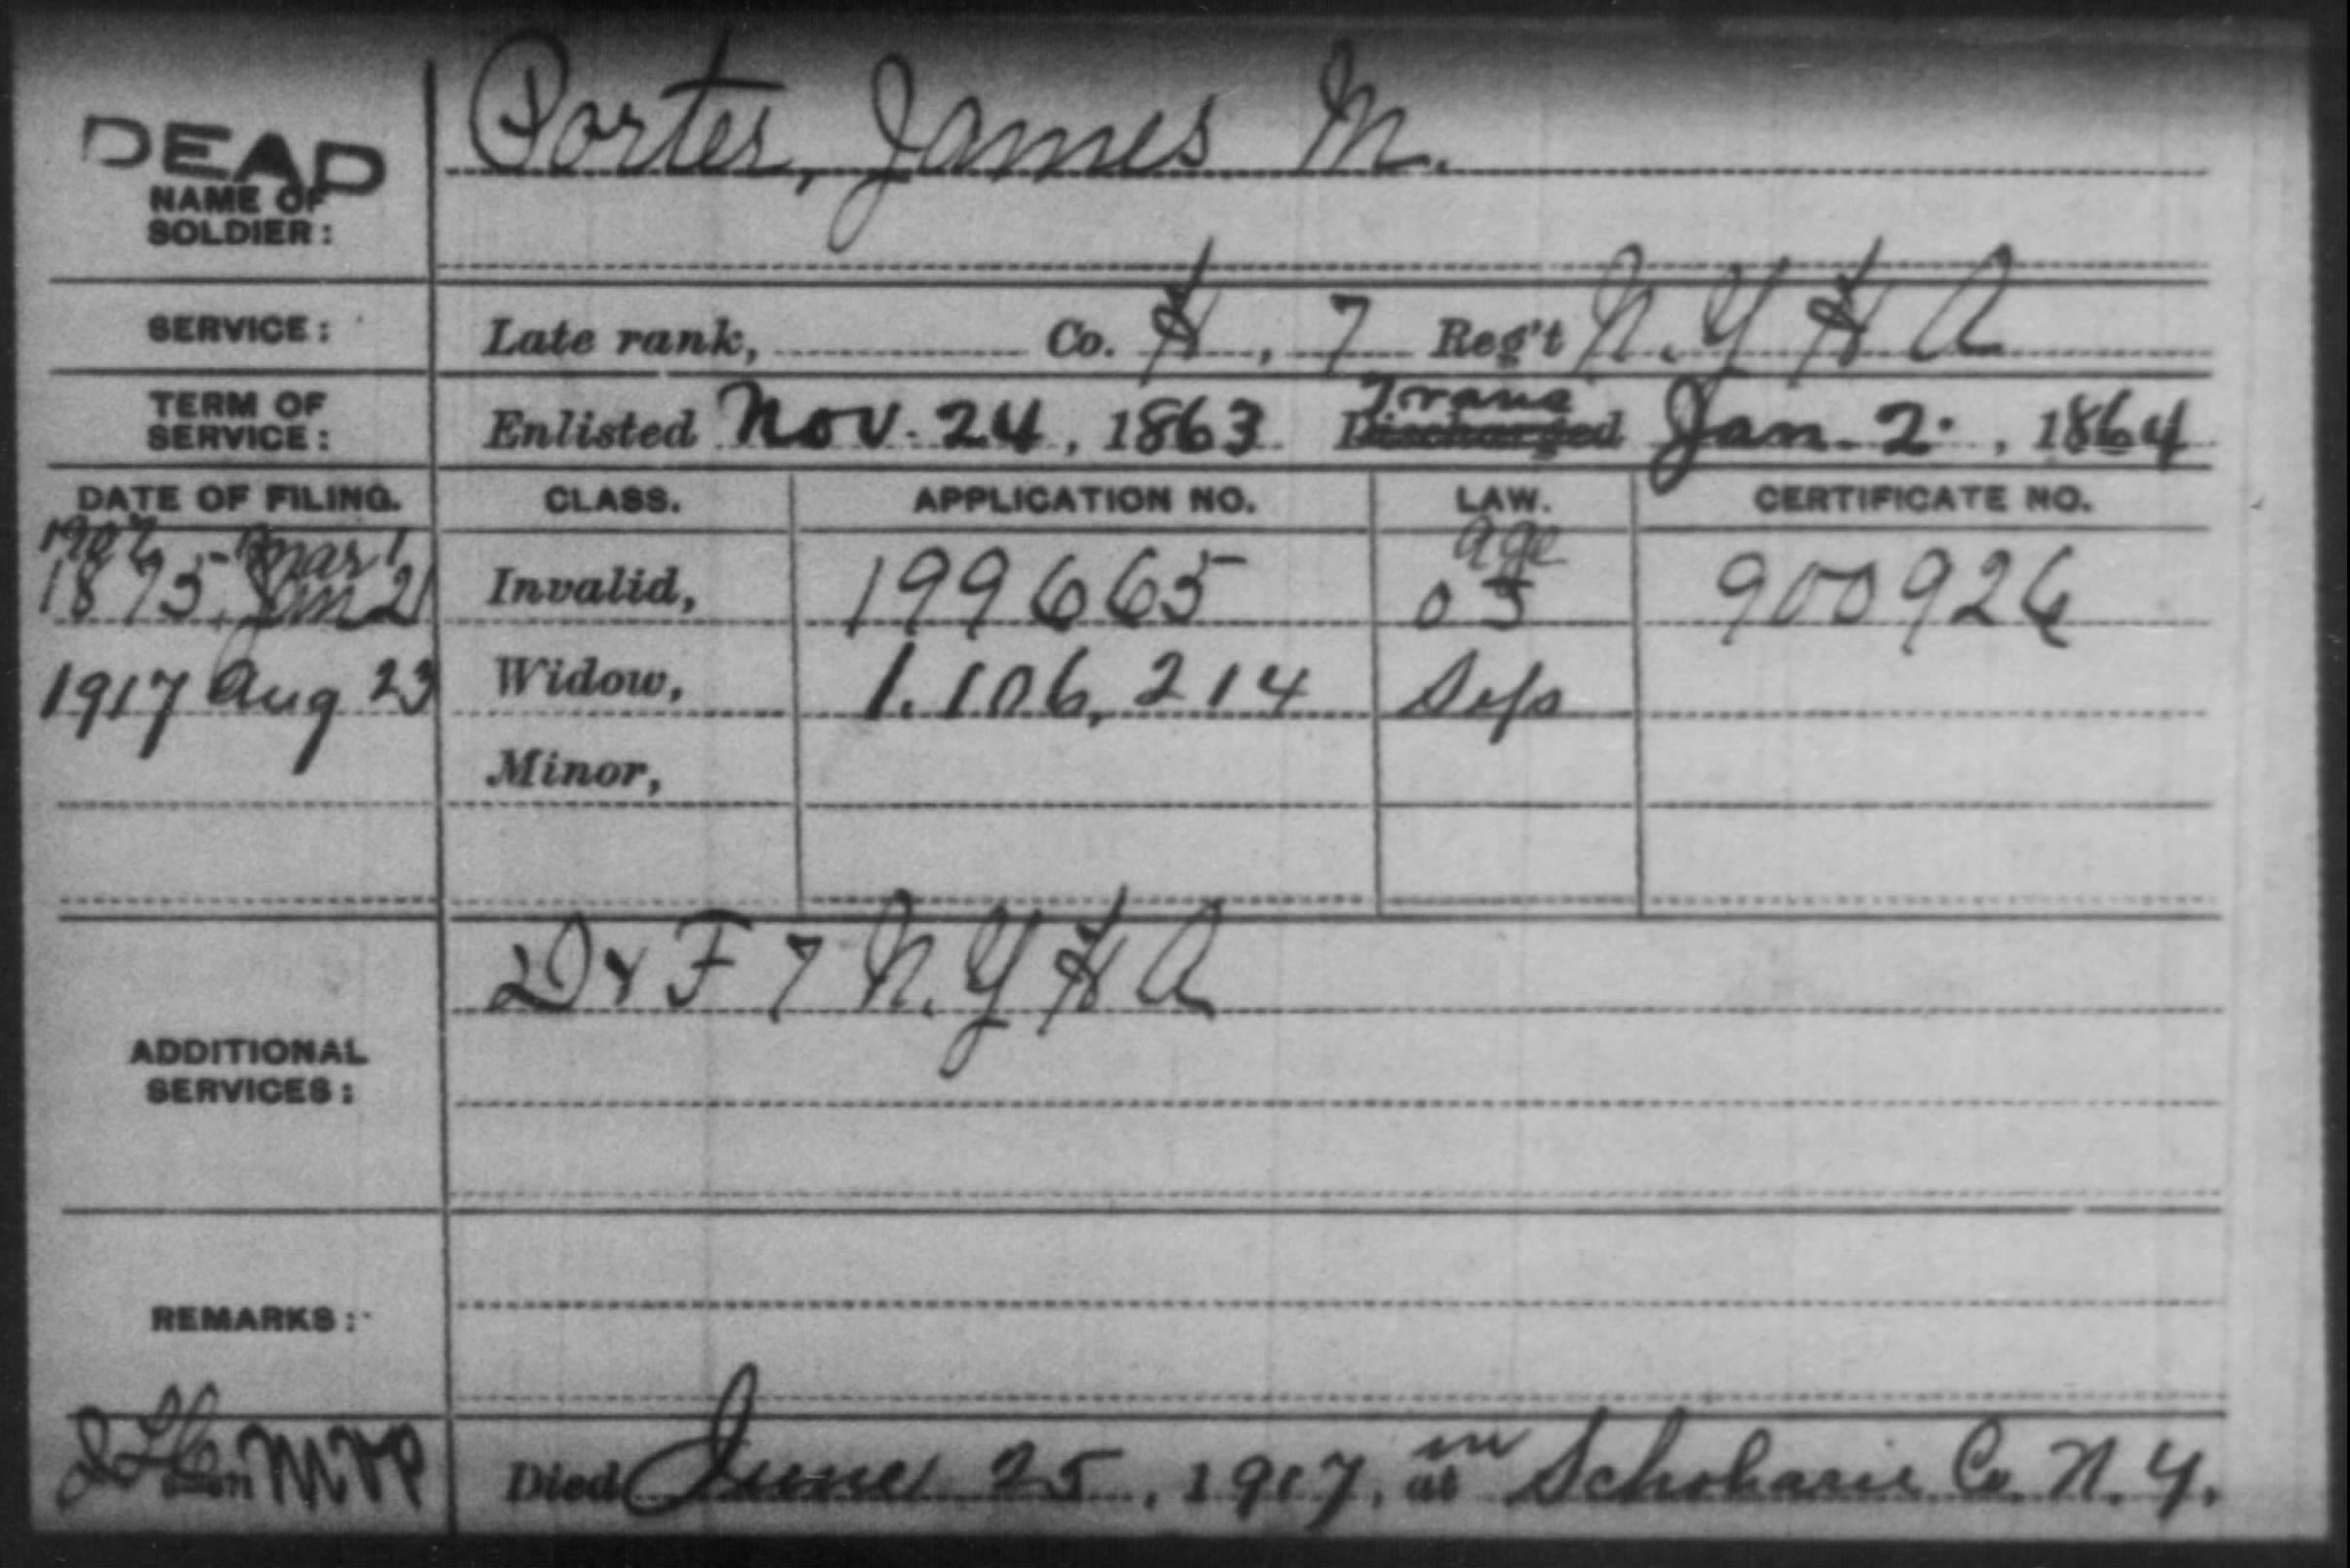 DEAD
NAME OF
SOLDIER:
Porter, James M.
SERVICE: Late rank, Co. H, 7 Reg't N.Y H A
TERM OF
SERVICE:
Trans
Enlisted Nov. 24, 1863 Discharged Jan. 2, 1864
DATE OF FILING. CLASS. APPLICATION NO. LAW. CERTIFICATE NO.
Mar 1 age
1875, Jan 21 Invalid, 199665 05 900926
1917 Aug 23 Widow, 1.106,214 Sep
Minor,
D & F 7 N.Y H A
ADDITIONAL
SERVICES:
REMARKS:
in
MVP Died June 25, 1917, at Schoharie Co. N.Y.